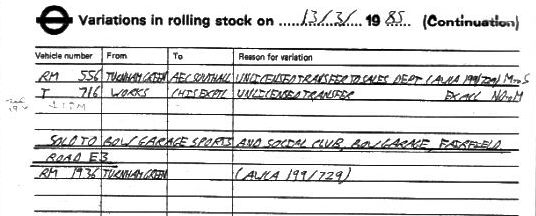 Variations in rolling stock on 13/3/ 1985 (Continuation)
Vehicle number From To Reason for variation
RM 556 TURNHAM GREEN AEC SOUTHALL UNLICENSED TRANSFER TO SALES DEPT (AWCA 199/729) M to S
T 716 WORKS CHIS EXPTL UNLICENSED TRANSFER EX ACC N to M
SOLD TO BOW GARAGE SPORTS AND SOCIAL CLUB, BOW GARAGE, FAIRFIELD
ROAD E3
RM 1936 TURNHAM GREEN (AWCA 199/729)